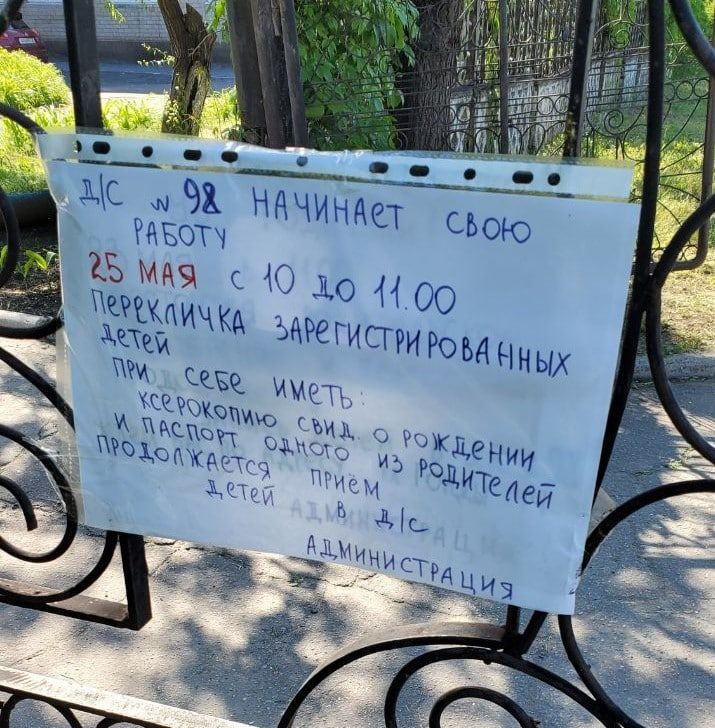 Д/С № 98 НАЧИНАЕТ СВОЮ
РАБОТУ
25 МАЯ С 10 ДО 11.00
ПЕРЕКЛИЧКА ЗАРЕГИСТРИРОВАННЫХ
ДЕТЕЙ
ПРИ СЕБЕ ИМЕТЬ:
КСЕРОКОПИЮ СВИД. О РОЖДЕНИИ
И ПАСПОРТ ОДНОГО ИЗ РОДИТЕЛЕЙ
ПРОДОЛЖАЕТСЯ ПРИЁМ
ДЕТЕЙ В Д/С
АДМИНИСТРАЦИЯ